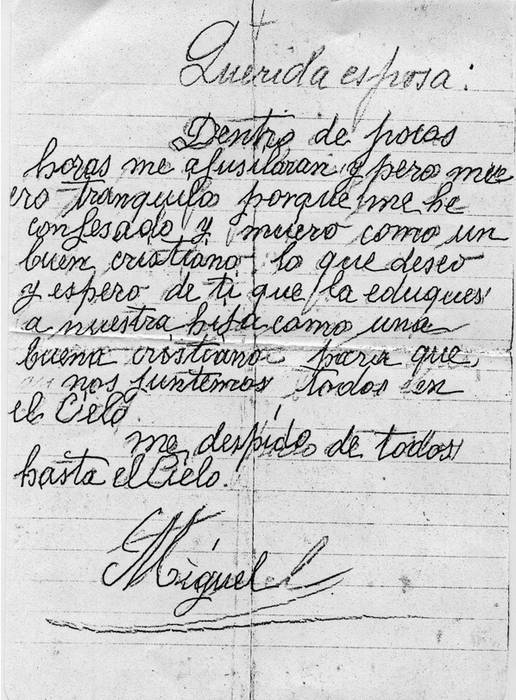 Querida esposa:
Dentro de pocas
horas me afusilaran y pero mue
ro tranquilo porque me he
confesado y muero como un
buen cristiano. lo que deseo
y espero de ti que la eduques
a nuestra hija como una
buena cristiana para que
nos juntemos todos en
el Cielo.
me despido de todos
hasta el Cielo.
Miguel